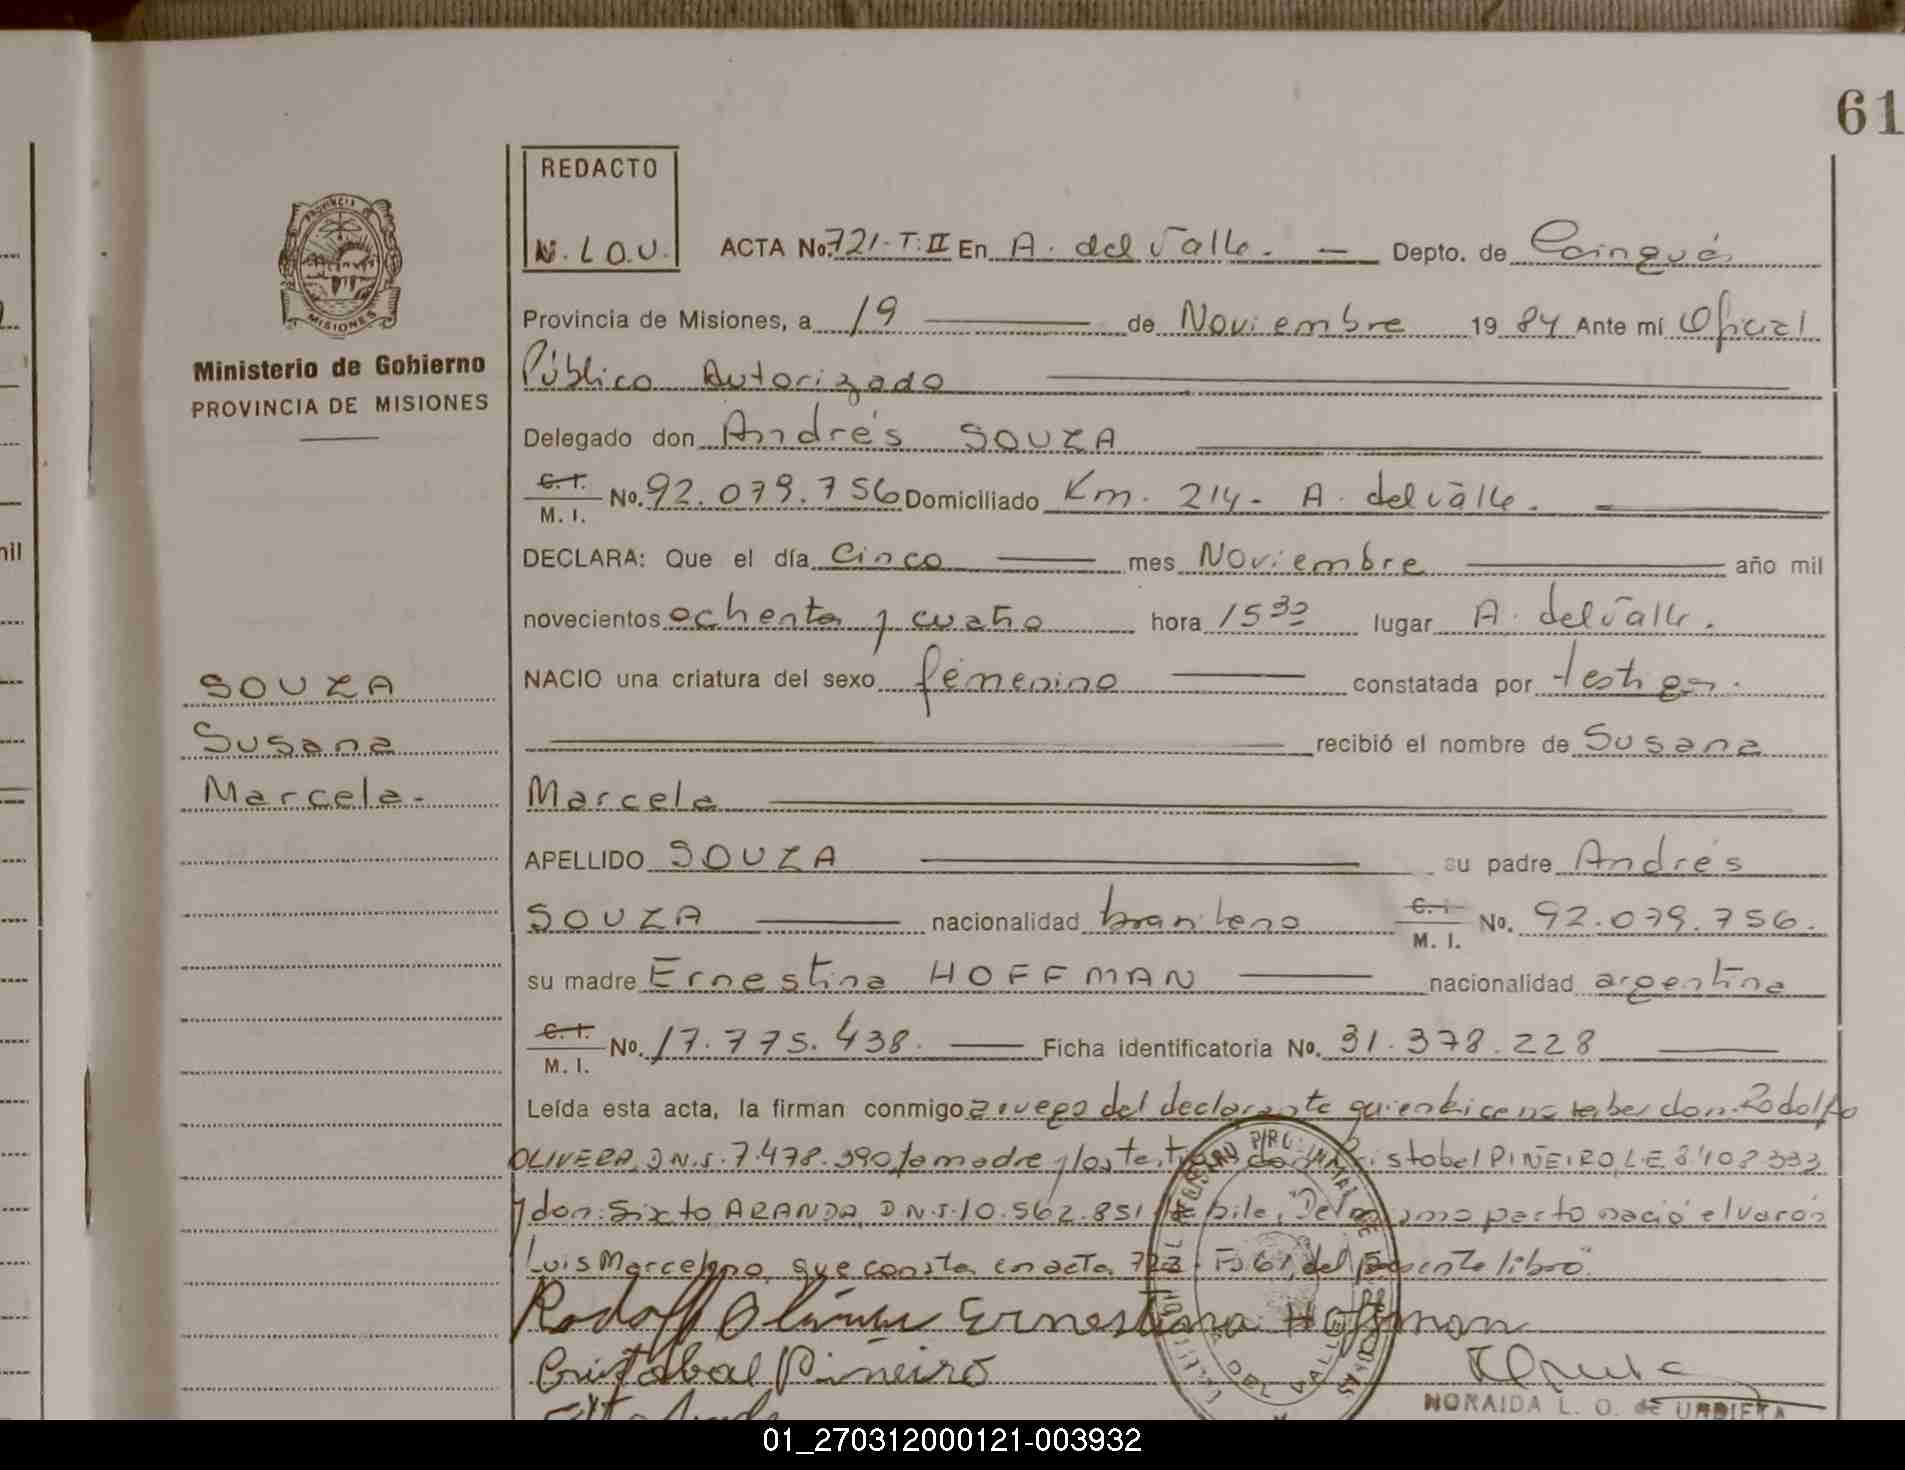 61
REDACTO
N. L O. U.
ACTA No. 721-T:II En A. del Valle. — Depto. de Cainguás
Provincia de Misiones, a 19 de Noviembre 1984 Ante mí Oficial
Público Autorizado
PROVINCIA DE
MISIONES
Ministerio de Gobierno
PROVINCIA DE MISIONES
Delegado don Andrés SOUZA
C. I.
M. I. No. 92.079.756 Domiciliado Km. 214- A. del Valle.
DECLARA: Que el día Cinco mes Noviembre año mil
nil
novecientos ochenta y cuatro hora 15 30 lugar A. del Valle.
NACIO una criatura del sexo femenino constatada por testigos.
recibió el nombre de Susana
Marcela
SOUZA
Susana
Marcela-
APELLIDO SOUZA su padre Andrés
SOUZA nacionalidad brasileno C. I. M. I. No. 92.079.756.
su madre Ernestina HOFFMAN nacionalidad argentina
C. I.
M. I. No. 17.775.438. Ficha identificatoria No. 31.378.228
Leída esta acta, la firman conmigo a ruego del declarante quien dice no saber don: Rodolfo
OLIVERA, D.N.I. 7.478.390, la madre y los testigos don: Cristobal PIÑEIRO, L.E. 8.108.333
y don: Sixto ARANDA, D.N.I. 10.562.851, "Del mismo parto nació el varón
Luis Marcelino, que consta en acta 722 - Fo 61, del presente libro".
Rodolfo Olivera Ernestina Hoffman
Cristobal Piñeiro
DEL VALLE
NORAIDA L. O. de URDIETA
01_270312000121-003932